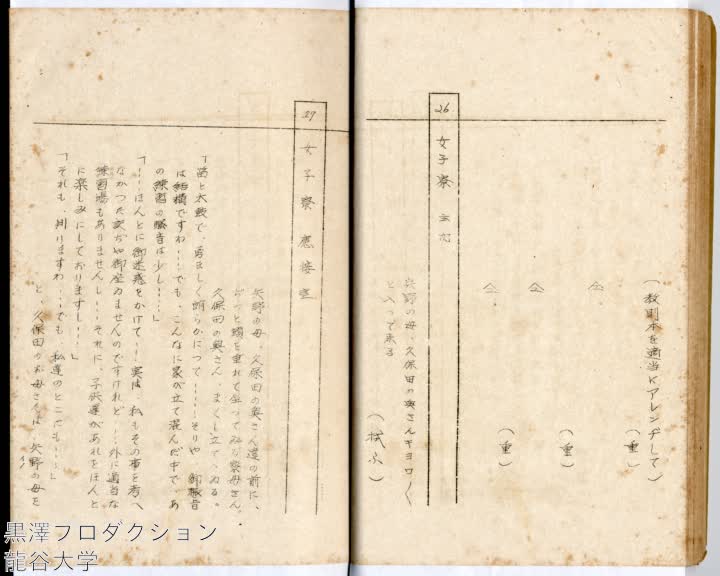 (教則本を適当にアレンヂして)
(重)
(重)
(重)
26 女子寮 玄関
矢野の母、久保田の奥さんキョロ〱
と入って来る
(拭ふ)
27 女子寮 應接室
矢野の母、久保田の奥さん達の前に、
と頭を垂れて坐ってゐる寮母さん。
久保田の奥さん、まくし立てゝゐる。
「笛と太鼓で、勇ましく朗らかにつて‥‥そりや
は結構ですわ‥‥でも、こんなに家が立て混んだ中で、あ
の練習の騒音は少し‥‥」
「‥‥ほんとに御迷惑をかけて‥‥実は、私もその事を考へ
なかった訳ぢや御座ゐませんのですけれど‥‥外に適当な
練習場もありませんし‥‥それに、子供達があれをほんと
に楽しみにしておりますし‥‥」
「それも、判りますわ‥‥でも、私達のとこでも‥‥」
と、久保田のお母さんは、矢野の母を
黒澤プロダクション
龍谷大学